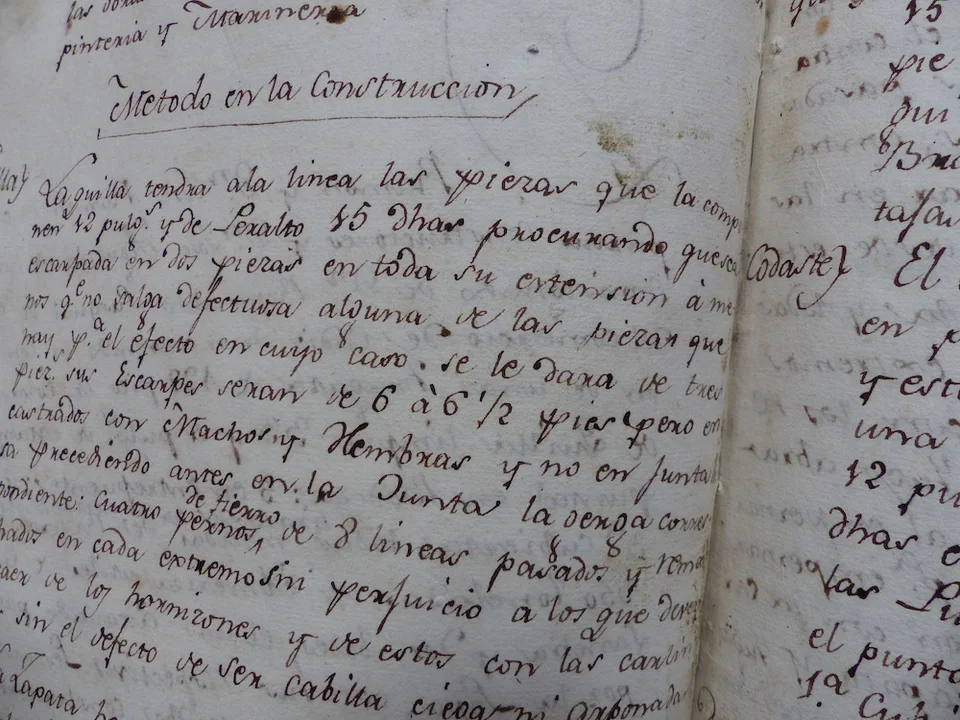 pinteria y Marineria
Metodo en la Construccion
La quilla tendra ala linea las piezas que la comp
nen 12 pulg.s y de Peralto 15 dhas procurando quesea
escarpada en dos piezas en toda su extension à me
nos q.e no salga defectuosa alguna de las piezas que
hay p.a el efecto en cuyo caso se le dara de tres
piez.s sus Escarpes seran de 6 à 6 1/2 pies pero en
castrados con Machos y Hembras y no en junta
sa precediendo antes en la Junta la
pondiente: Cuatro pernos de fierro de 8 lineas pasados y rema
hados en cada extremo sin perjuicio a los que deve
caer de los hornizones y de estos con las carlin
sin el defecto de ser cabilla ciega ni
Zapata
15
pie
qui
tasas
Codaste) El
en p
y est
una
12 pu
dhas e
las
el punto
1a